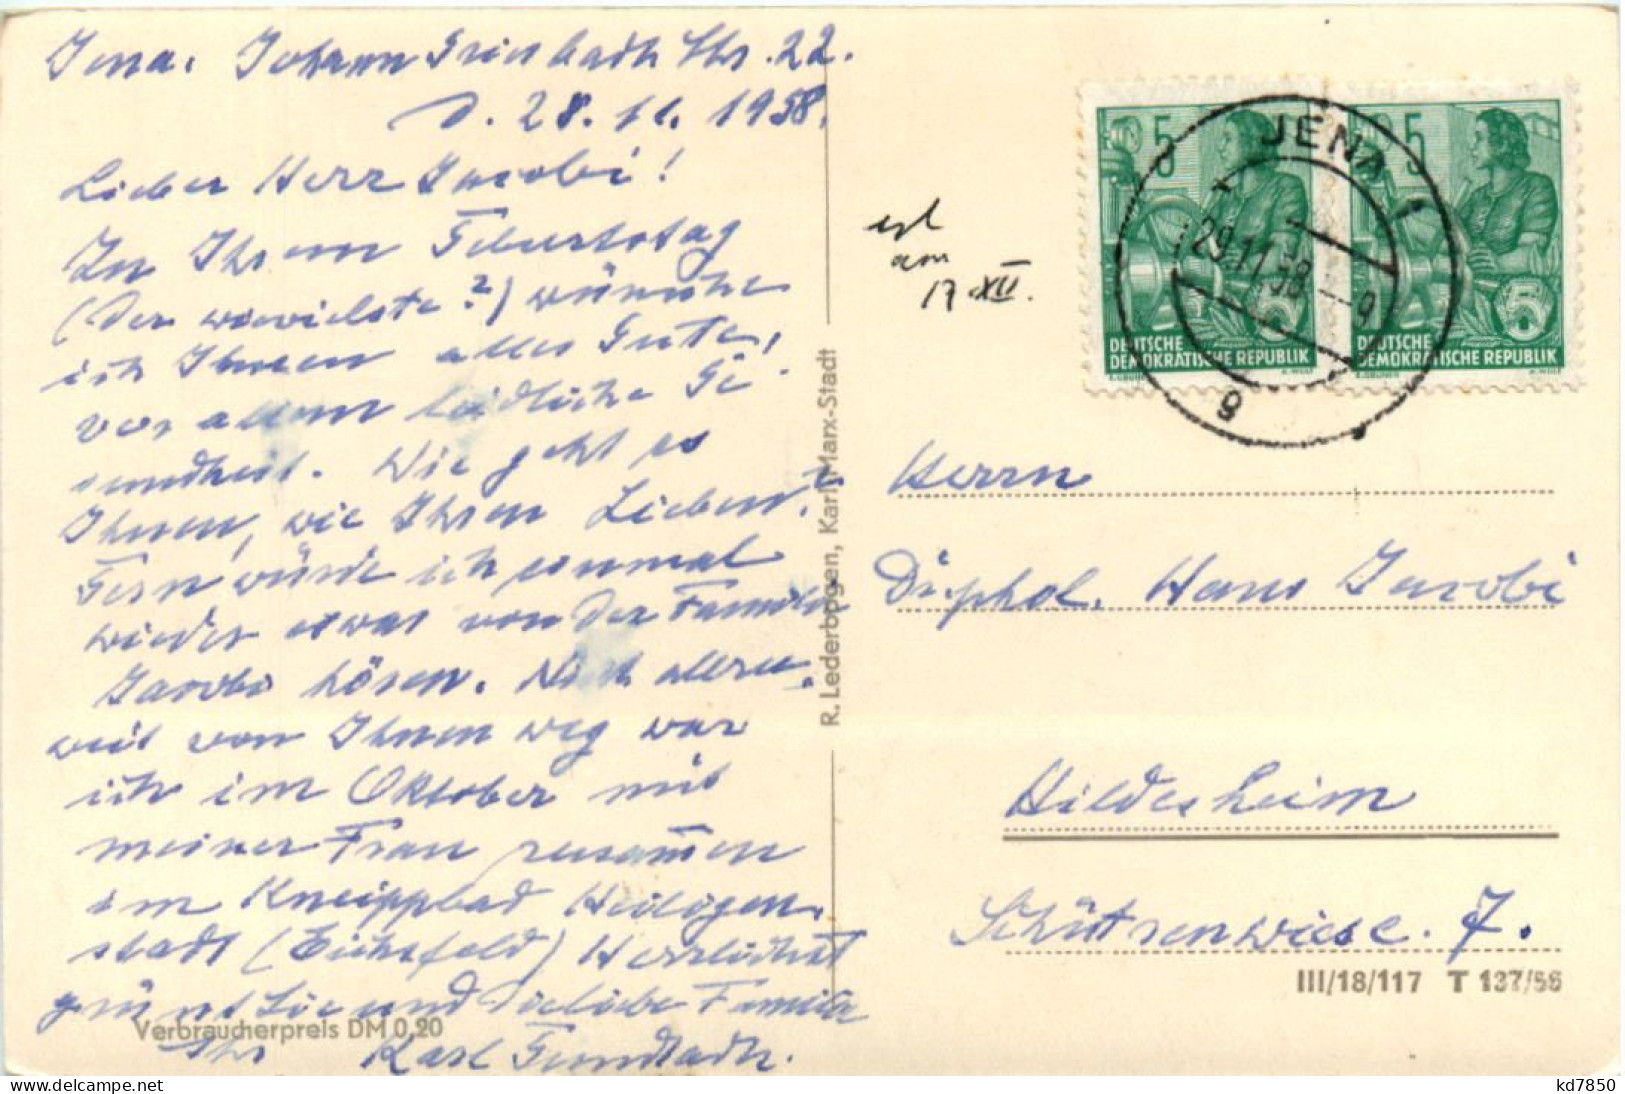 Jena. Johann Griesbach Str. 22.
d. 28. 11. 1958.
Lieber Herr Jacobi!
Zu Ihrem Geburtstag
(der wievielte?) wünsche
ich Ihnen alles Gute,
vor allem leidliche Ge-
sundheit. Wie geht es
Ihnen, wie Ihren Lieben?
Gern würde ich einmal
wieder etwas von der Familie
Jacobi hören. Nicht allzu
weit von Ihnen weg war
ich im Oktober mit
meiner Frau zusammen
im Kneippbad Heiligen-
stadt (Eichsfeld) Herzlichst
grüßt Sie und die liebe Familie
Ihr Karl
Verbraucherpreis DM 0,20
R. Lederbogen, Karl-Marx-Stadt
erst
am
17. XII.
5 5
JENA 1
29.11.58
g
5 5
DEUTSCHE
DEMOKRATISCHE REPUBLIK
DEUTSCHE
DEMOKRATISCHE REPUBLIK
Herrn
Dipl. Hans Jacobi
Hildesheim
Schützenwiese. 7.
III/18/117 T 137/56
kd7850